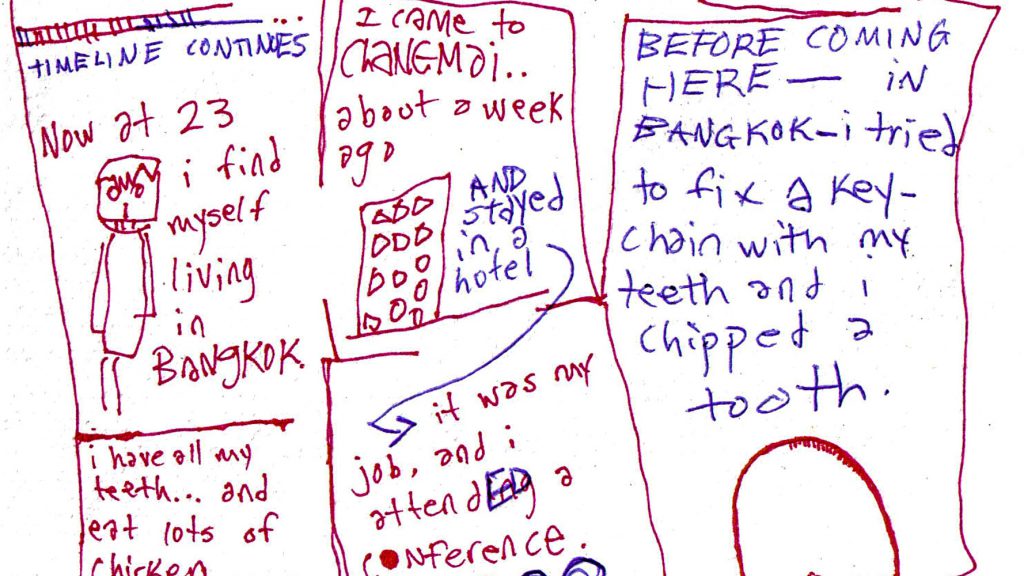 ...
TIMELINE CONTINUES
Now at 23
i find
myself
living
in
BANGKOK.
i have all my
teeth... and
eat lots of
chicken
I came to
CHANGMAi..
about a week
ago
AND
stayed
in a
hotel
it was my
job, and i
attendED a
conference.
BEFORE COMING
HERE — in
BANGKOK—i tried
to fix a key-
chain with my
teeth and i
chipped a
tooth.